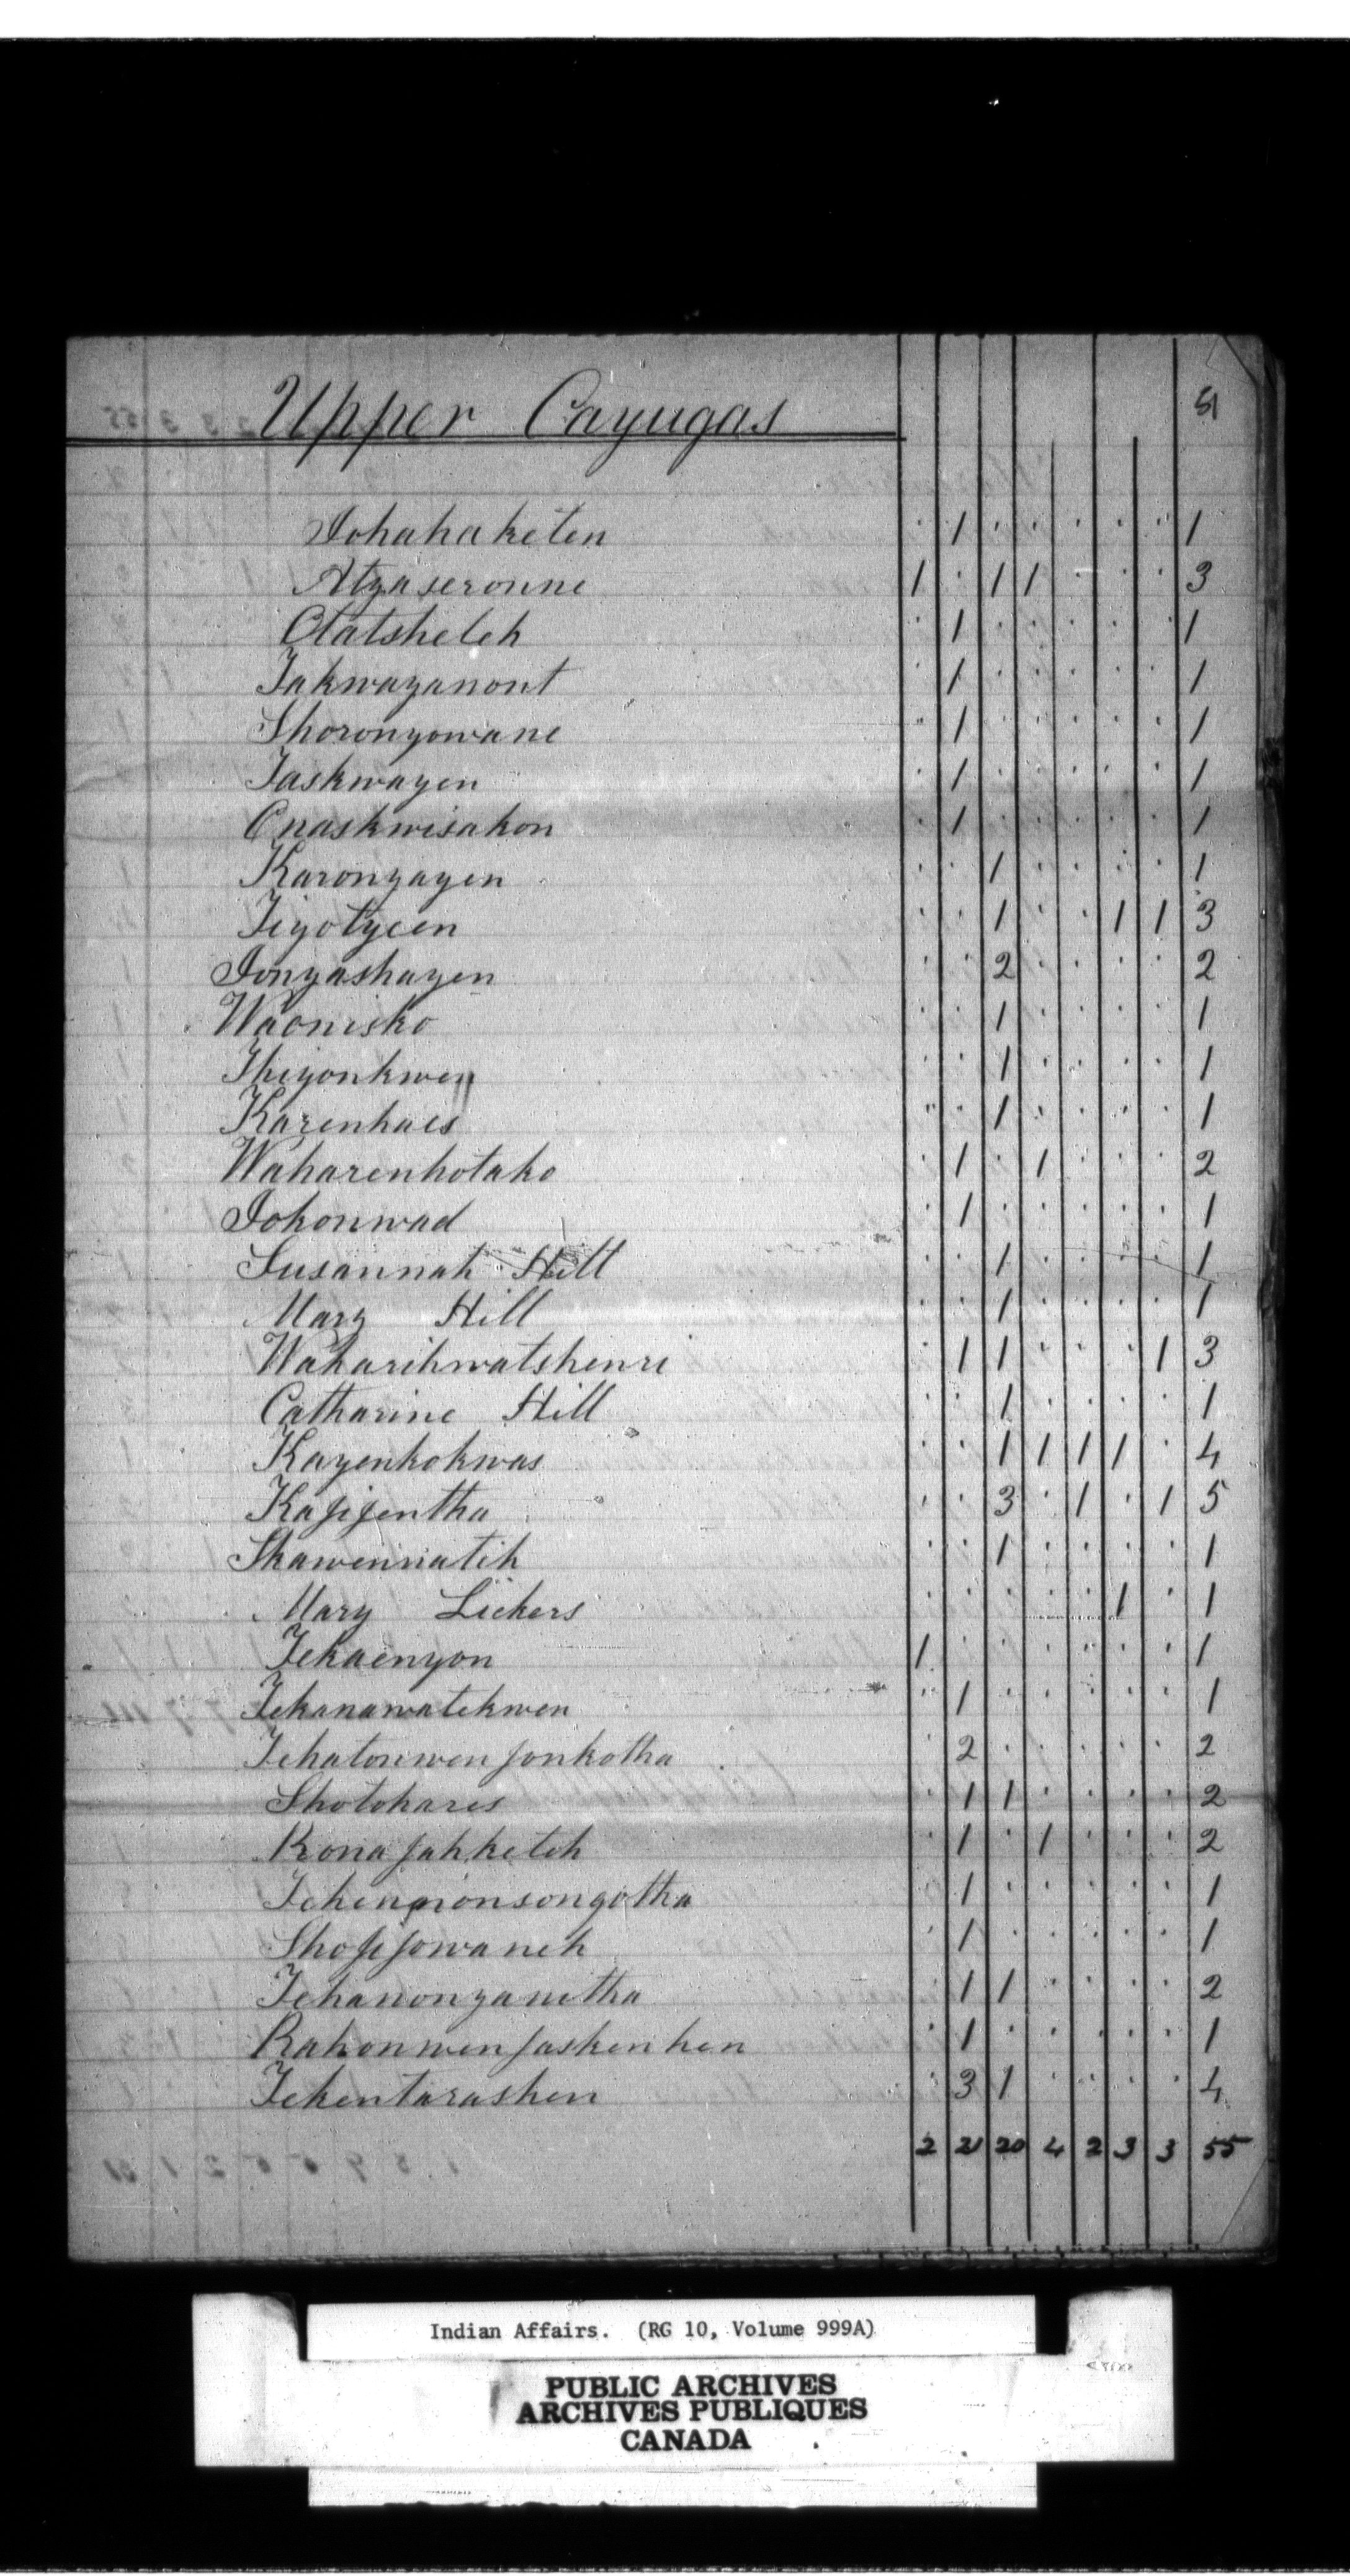 Upper Cayugas 51
Johahaketen · 1 · · · · · 1
Atyaseronne 1 · 1 1 · · · 3
Otatsheteh · 1 · · · · · 1
Takwayanont · 1 · · · · · 1
Shoronyowane · 1 · · · · · 1
Taskwayen · 1 · · · · · 1
Onaskwisakon · 1 · · · · · 1
Karonyayen · · 1 · · · · 1
Teyotyeen · · 1 · · 1 1 3
Jonyashayen · · 2 · · · · 2
Waonisko · · 1 · · · · 1
Thiyonkwen · · 1 · · · · 1
Karenhaes · · 1 · · · · 1
Waharenhotako · 1 · 1 · · · 2
Johonwad · 1 · · · · · 1
Susannah Hill · · 1 · · · · 1
Mary Hill · · 1 · · · · 1
Waharihwatshenri · 1 1 · · · 1 3
Catharine Hill · · 1 · · · · 1
Kayenkokwas · · 1 1 1 1 · 4
Kajijentha · · 3 · 1 · 1 5
Skawenniatih · · 1 · · · · 1
Mary Lickers · · · · · 1 · 1
Tekaenyon 1 · · · · · · 1
Tekanawatekwen · 1 · · · · · 1
Tehatonwenjonkotha · 2 · · · · · 2
Shotohares · 1 1 · · · · 2
Ronajahketeh · 1 · 1 · · · 2
Tehennionsongotha · 1 · · · · · 1
Shojijowaneh · 1 · · · · · 1
Tehanonyanitha · 1 1 · · · · 2
Rahonwenjaskenhen · 1 · · · · · 1
Tekentarashen · 3 1 · · · · 4
2 21 20 4 2 3 3 55
Indian Affairs. (RG 10, Volume 999A)
PUBLIC ARCHIVES
ARCHIVES PUBLIQUES
CANADA